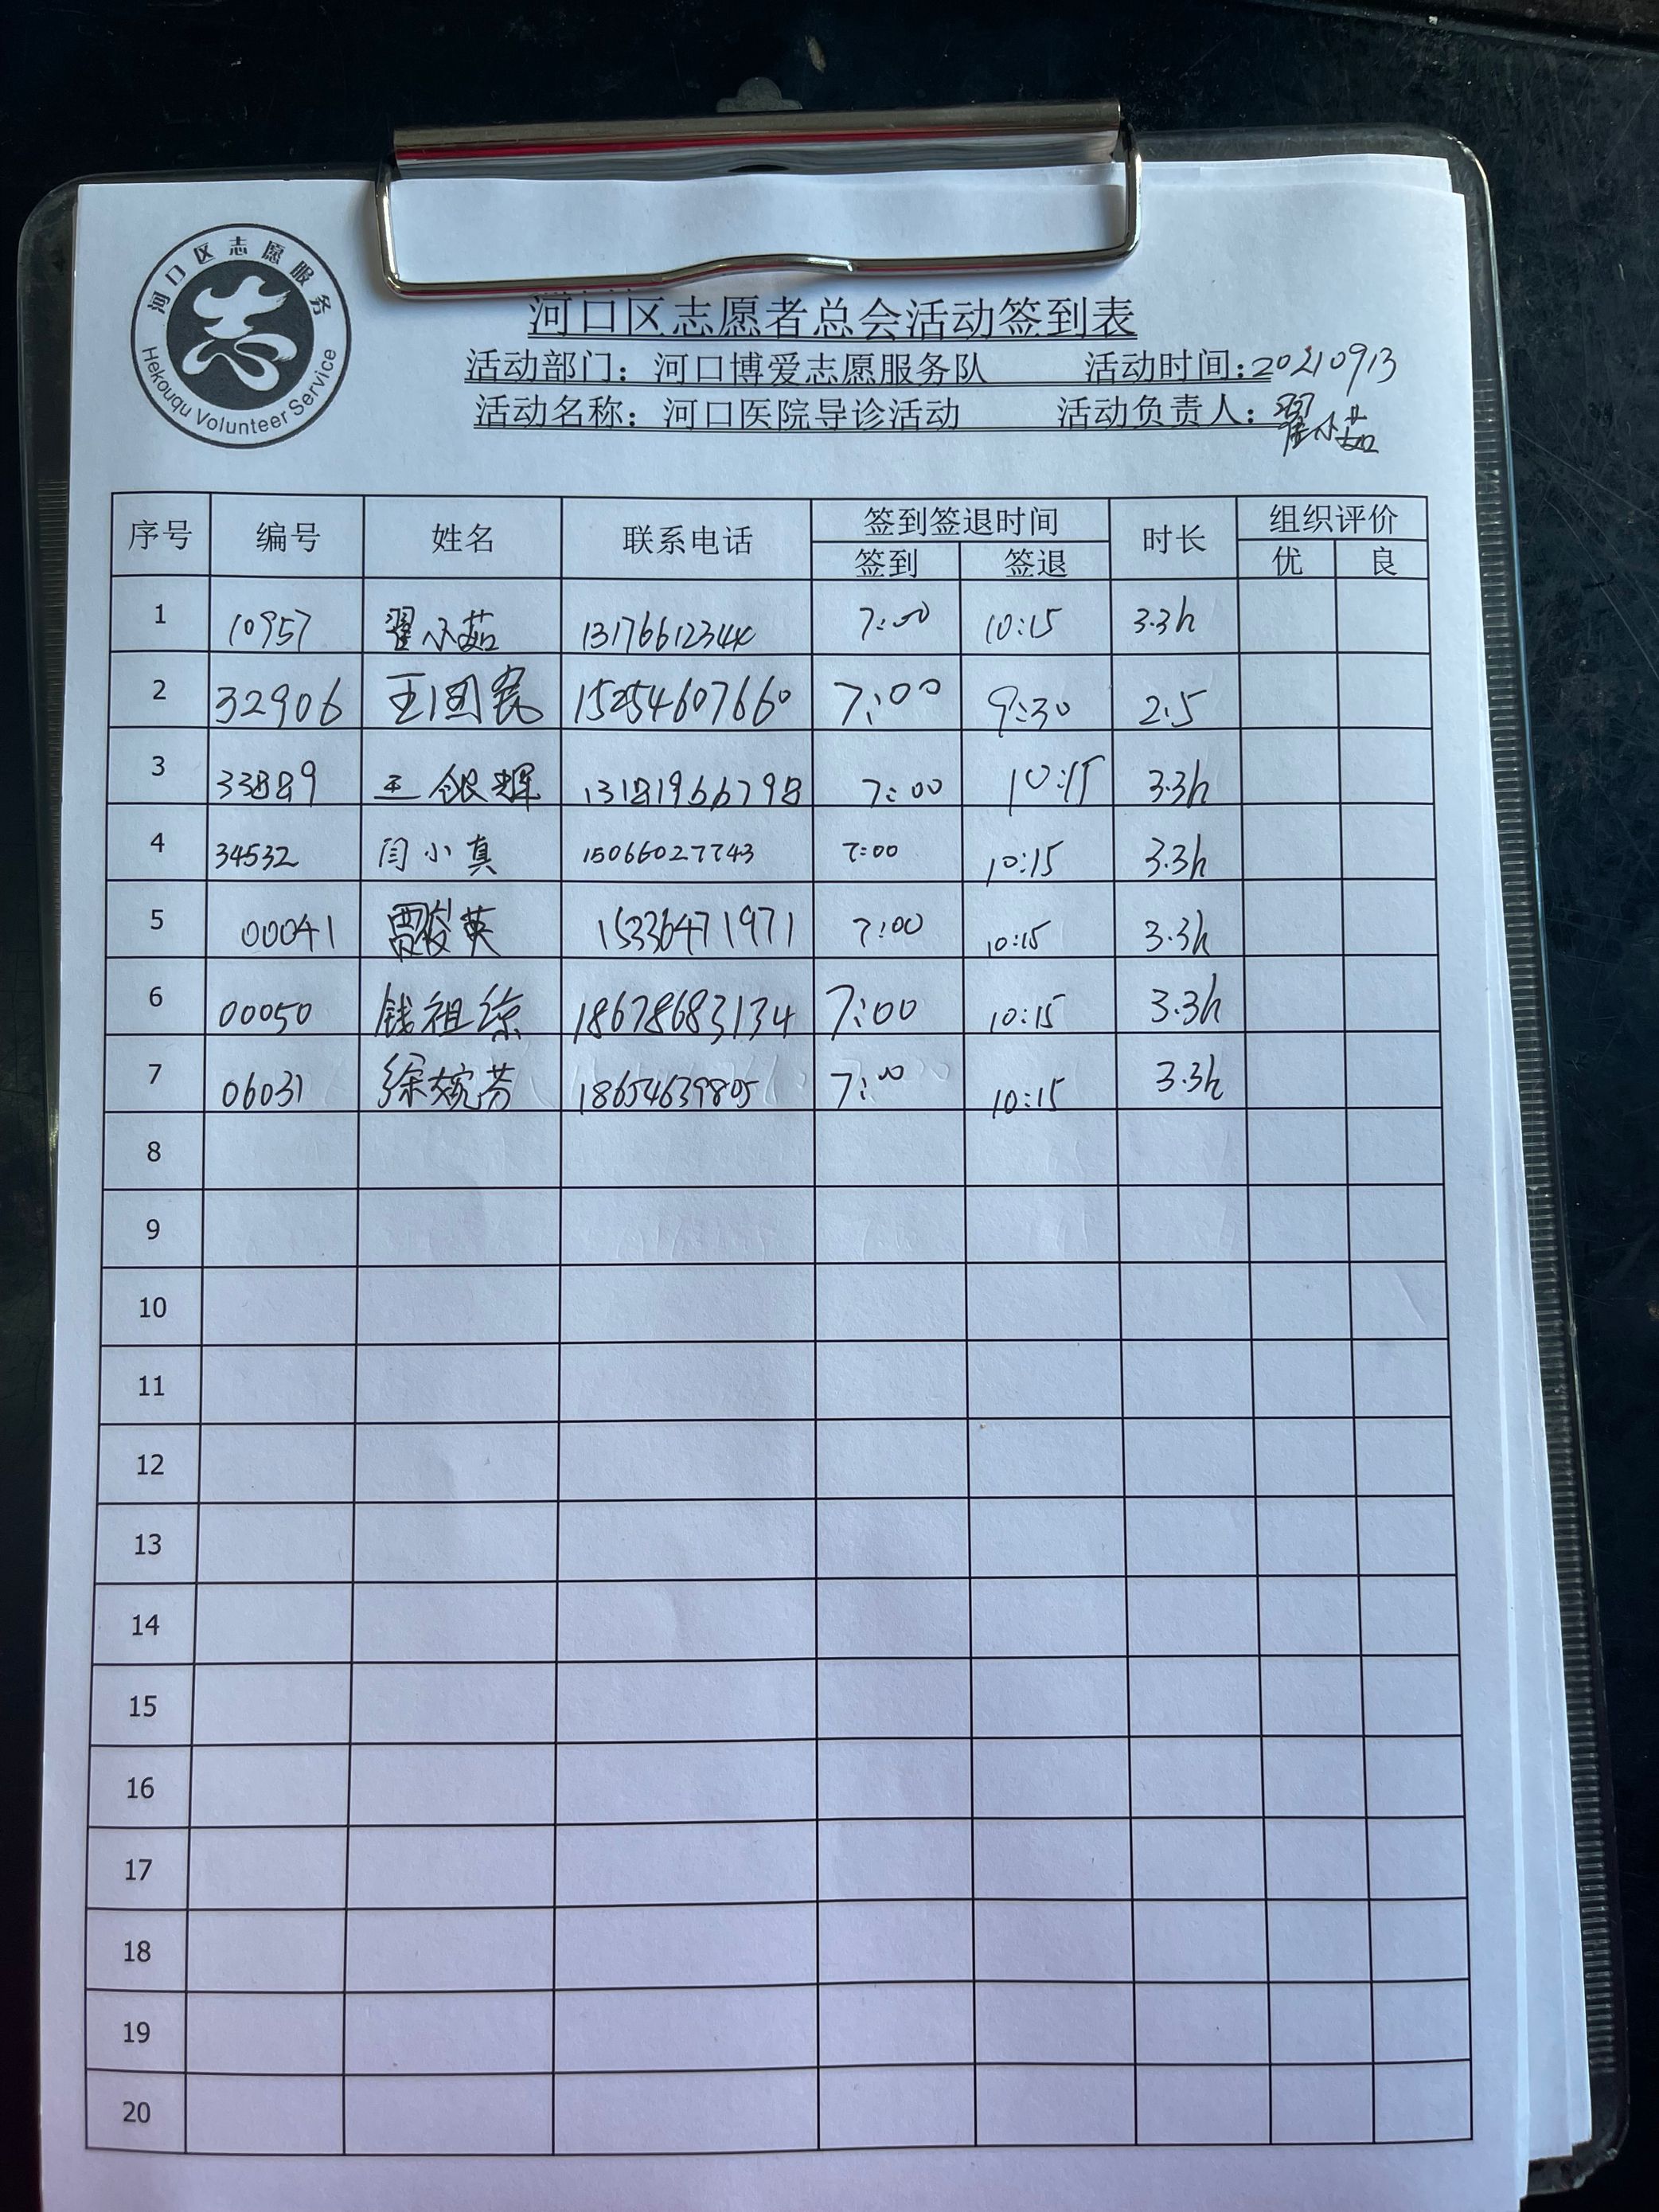 河口区志愿服务
Hekouqu Volunteer Service
河口区志愿者总会活动签到表
活动部门：河口博爱志愿服务队 活动时间：20210913
活动名称：河口医院导诊活动 活动负责人：翟小茹
序号 编号 姓名 联系电话 签到签退时间 时长 组织评价
签到 签退 优 良
1 10957 翟小茹 13176612344 7:00 10:15 3.3h
2 32906 王国宪 15254607660 7:00 9:30 2.5
3 33889 王银辉 13181966798 7:00 10:15 3.3h
4 34532 闫小真 15066027743 7:00 10:15 3.3h
5 00041 贾俊英 15336471971 7:00 10:15 3.3h
6 00050 钱祖琼 18678683134 7:00 10:15 3.3h
7 06031 徐婉芬 18654639805 7:00 10:15 3.3h
8
9
10
11
12
13
14
15
16
17
18
19
20